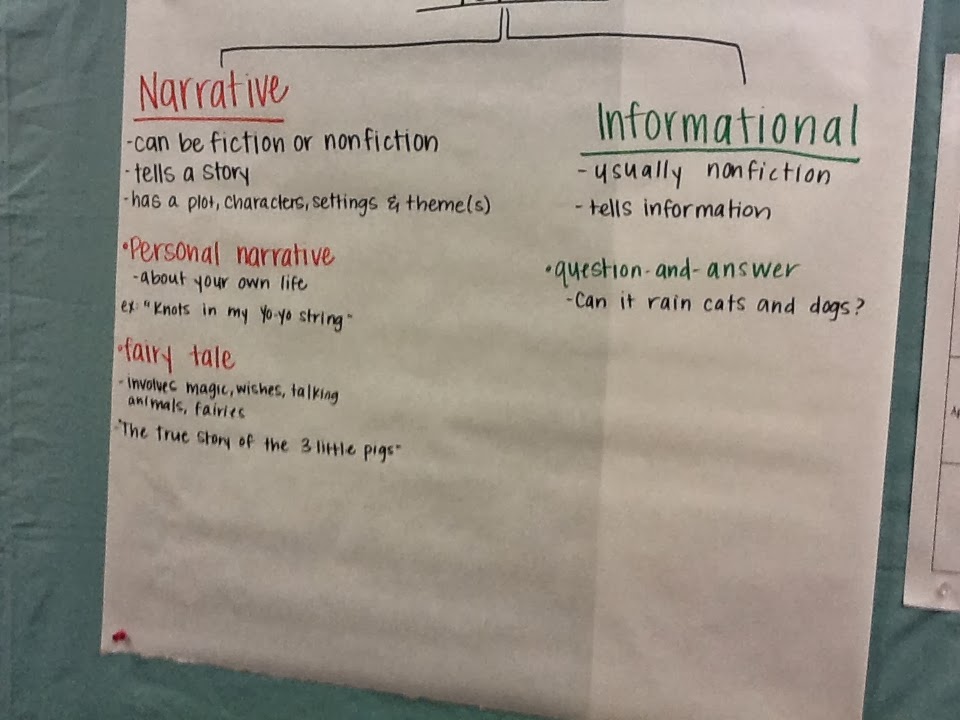 Narrative
-can be fiction or nonfiction
-tells a story
-has a plot, characters, settings & theme(s)
•Personal narrative
-about your own life
ex: "Knots in my Yo-yo string"
•fairy tale
-involves magic, wishes, talking
animals, fairies
-"The true story of the 3 little pigs"
Informational
-usually nonfiction
-tells information
•question-and-answer
-Can it rain cats and dogs?